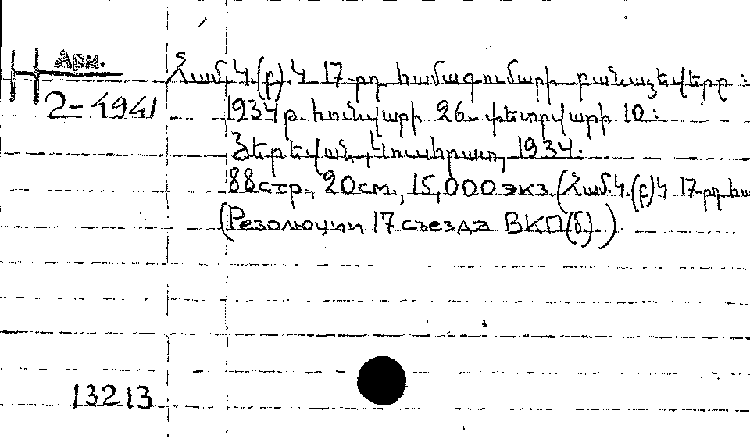 Арм.
2-4941
Համ.Կ.(բ).Կ 17-րդ համագումարի բանաձեվերը:
1934 թ. հունվարի 26-փետրվարի 10:
Յերեվան, Կուսհրատ, 1934.
88 стр., 20 см., 15,000 экз. (Համ.Կ.(բ)Կ 17-րդ հա
(Резолюции 17 съезда ВКП(б).)
13213